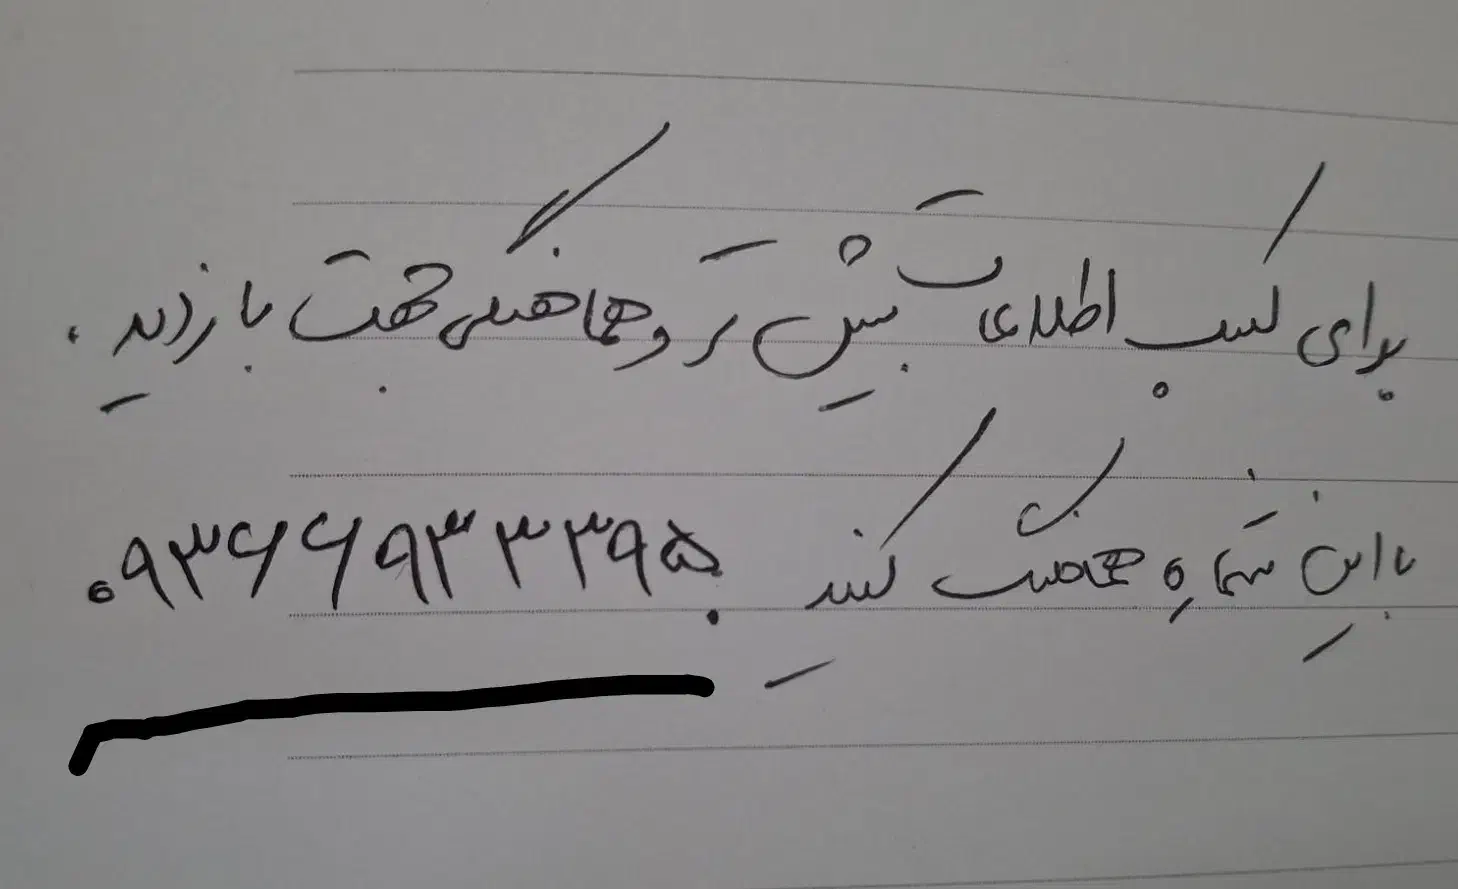 برای کسب اطلاعات بیش تر و هماهنگی جهت بازدید.
با این شماره صحبت کنید ۰۹۳۶۶۹۳۳۳۹۵.